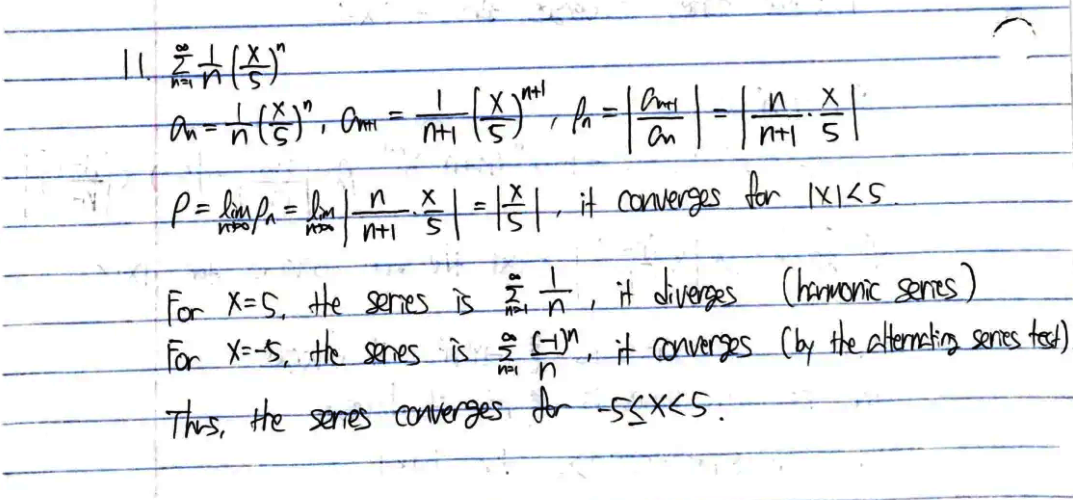 11. $\sum_{n=1}^{\infty} \frac{1}{n} \left(\frac{x}{5}\right)^n$
$a_n = \frac{1}{n} \left(\frac{x}{5}\right)^n, a_{n+1} = \frac{1}{n+1} \left(\frac{x}{5}\right)^{n+1}, \rho_n = \left|\frac{a_{n+1}}{a_n}\right| = \left|\frac{n}{n+1} \cdot \frac{x}{5}\right|$
$\rho = \lim_{n \to \infty} \rho_n = \lim_{n \to \infty} \left|\frac{n}{n+1} \cdot \frac{x}{5}\right| = \left|\frac{x}{5}\right|$, it converges for $|x| < 5$.
For $x = 5$, the series is $\sum_{n=1}^{\infty} \frac{1}{n}$, it diverges (harmonic series)
For $x = -5$, the series is $\sum_{n=1}^{\infty} \frac{(-1)^n}{n}$, it converges (by the alternating series test)
Thus, the series converges for $-5 \leq x < 5$.